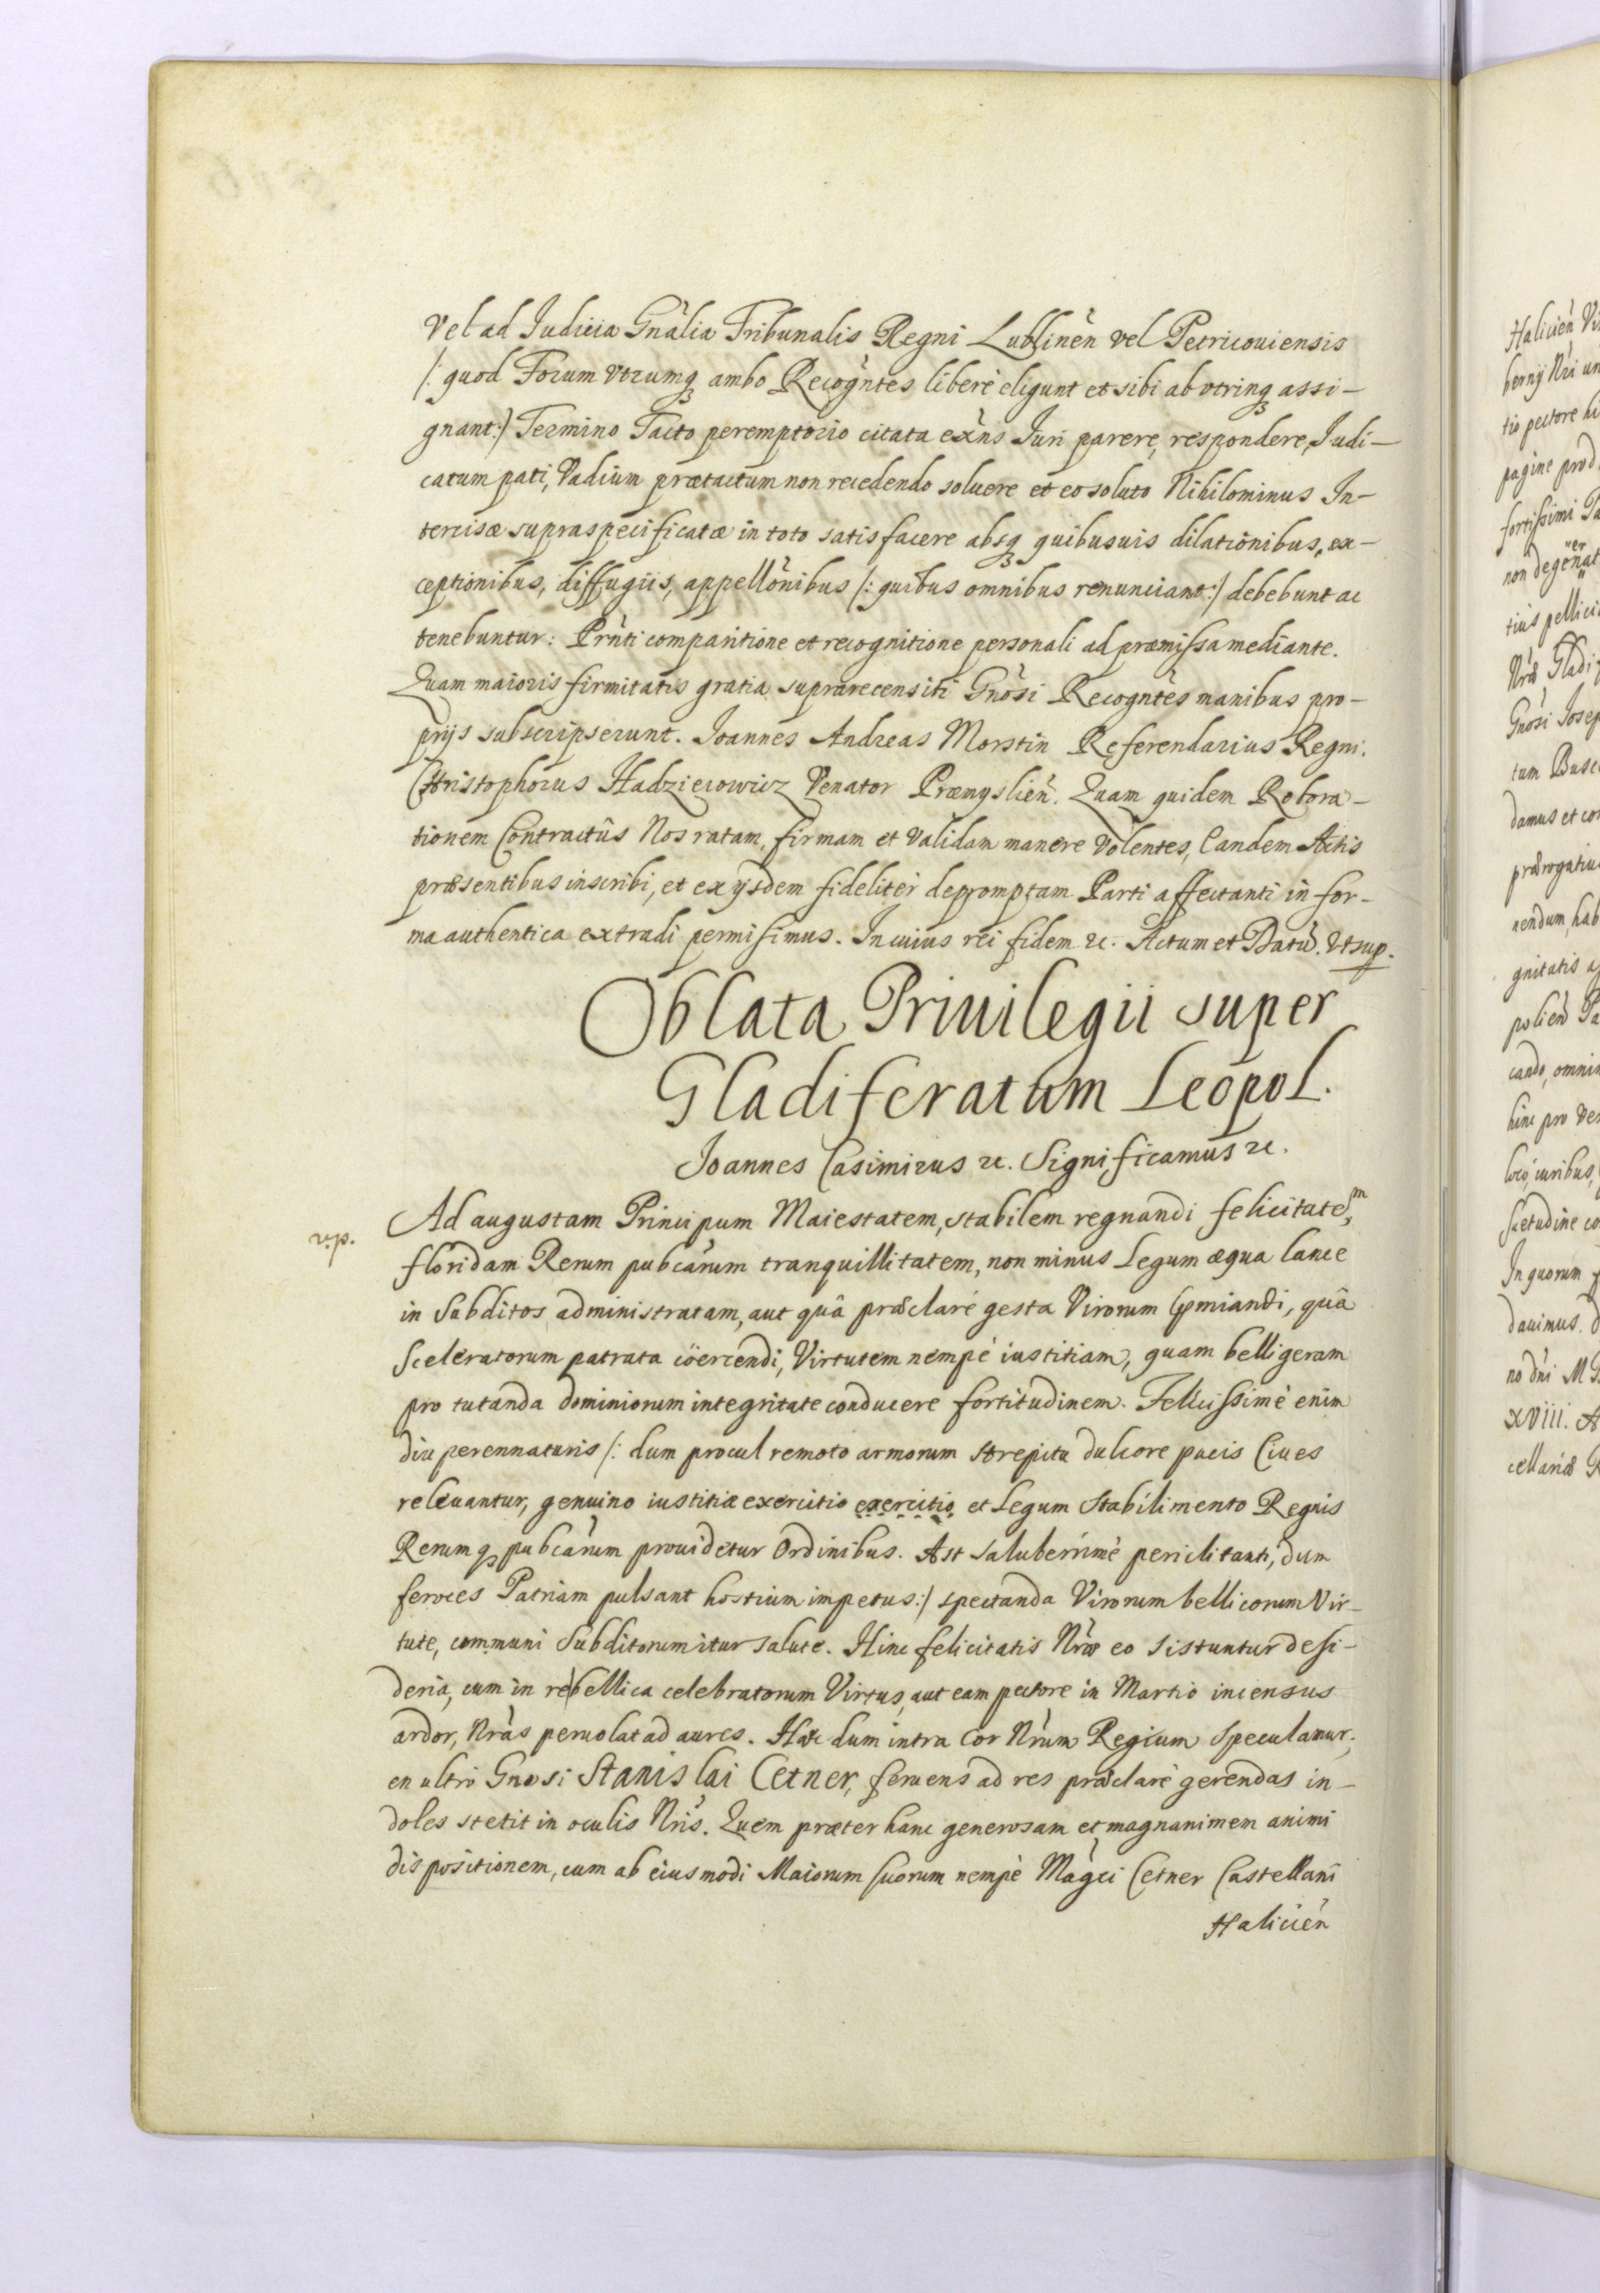 Vel ad Judicia Gnãlia Tribunalis Regni Lublinẽn vel Petricouiensis
/: quod Forum vtrumq3 ambo Recogñtes liberè eligunt et sibi ab vtrinq3 assi-
gnant:/ Termino Tacto peremptorio citata exñs Juri parere, respondere, Judi-
catum pati, Vadium prætactum non recedendo soluere et eo soluto Nihilominus In-
tercisæ supraspecificatæ in toto satisfacere absq3 quibusuis dilationibus, ex-
ceptionibus, diffugiis, appellõnibus /: quibus omnibus renunciant:/ debebunt ac
tenebuntur: Prñti comparitione et recognitione personali ad præmissa mediante.
Quam maioris firmitatis gratia suprarecensiti Gnõsi Recogñtes manibus pro-
prijs subscripserunt. Joannes Andreas Morstin Referendarius Regni.
Christophorus Hadzieiowicz Venator Præmysliẽn. Quam quidem Robora-
tionem Contractûs Nos ratam, firmam et validam manere Volentes, Eandem Actis
præsentibus inscribi, et ex ijsdem fideliter depromptam Parti affectanti in for-
ma authentica extradi permisimus. In cuius rei fidem &c. Actum et Datũ. Vt sup.
Oblata Priuilegii super
Gladiferatum Leopol.
Joannes Casimirus &c. Significamus &c.
Ad augustam Principum Maiestatem, stabilem regnandi felicitatem,
floridam Rerum pubcãrum tranquillitatem, non minus Legum æqua lance
in Subditos administratam, aut quâ præclarè gesta Virorum p̃miandi, quâ
Sceleratorum patrata cöercendi, Virtutem nempè iustitiam, quam belligeram
pro tutanda dominiorum integritate conducere fortitudinem. Felicissimè enim
diu perennaturis /: dum procul remoto armorum strepitu dulcore pacis Ciues
releuantur, genuino iustitiæ exercitio exercitio, et Legum Stabilimento Regnis
Rerumq3 pubcãrum prouidetur Ordinibus. Ast saluberrimè periclitanti, dum
feroces Patriam pulsant hostium impetus:/ spectanda Virorum bellicorum Vir-
tute, communi Subditorum itur salute. Hinc felicitatis Nr̃æ eo sistuntur desi-
deria, cum in re bellica celebratorum Virtus, aut eam pectore in Martio incensus
ardor, Nr̃as peruolat ad aures. Hæc dum intra Cor Nr̃um Regium speculamur,
en ultrò Gnosi Stanislai Cetner, feruens ad res præclarè gerendas in-
doles stetit in oculis Nr̃is. Quem præter hanc generosam et magnanimem animi
dispositionem, cum ab eiusmodi Maiorum suorum nempè Magci Cetner Castellani
Haliciẽn